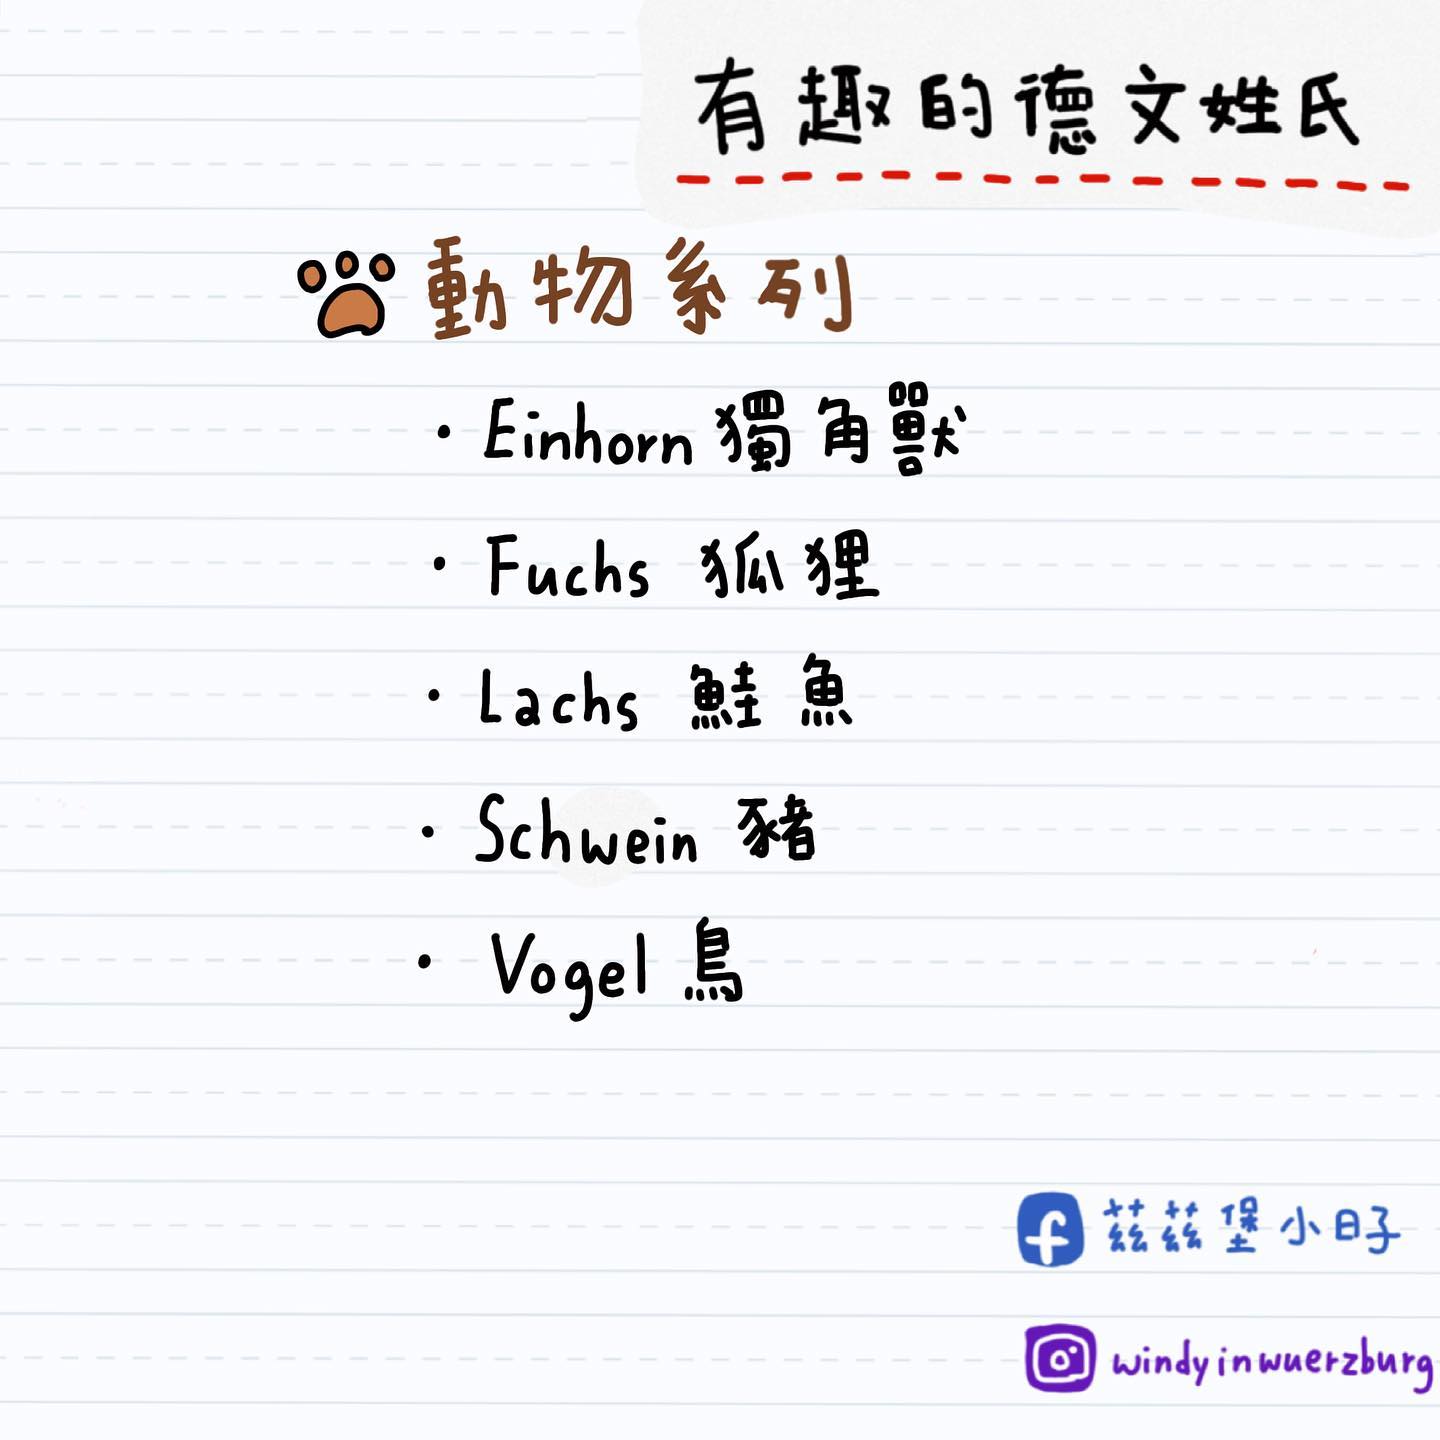 有趣的德文姓氏
動物系列
· Einhorn 獨角獸
· Fuchs 狐狸
· Lachs 鮭魚
· Schwein 豬
· Vogel 鳥
茲茲堡小日子
windyinwuerzburg